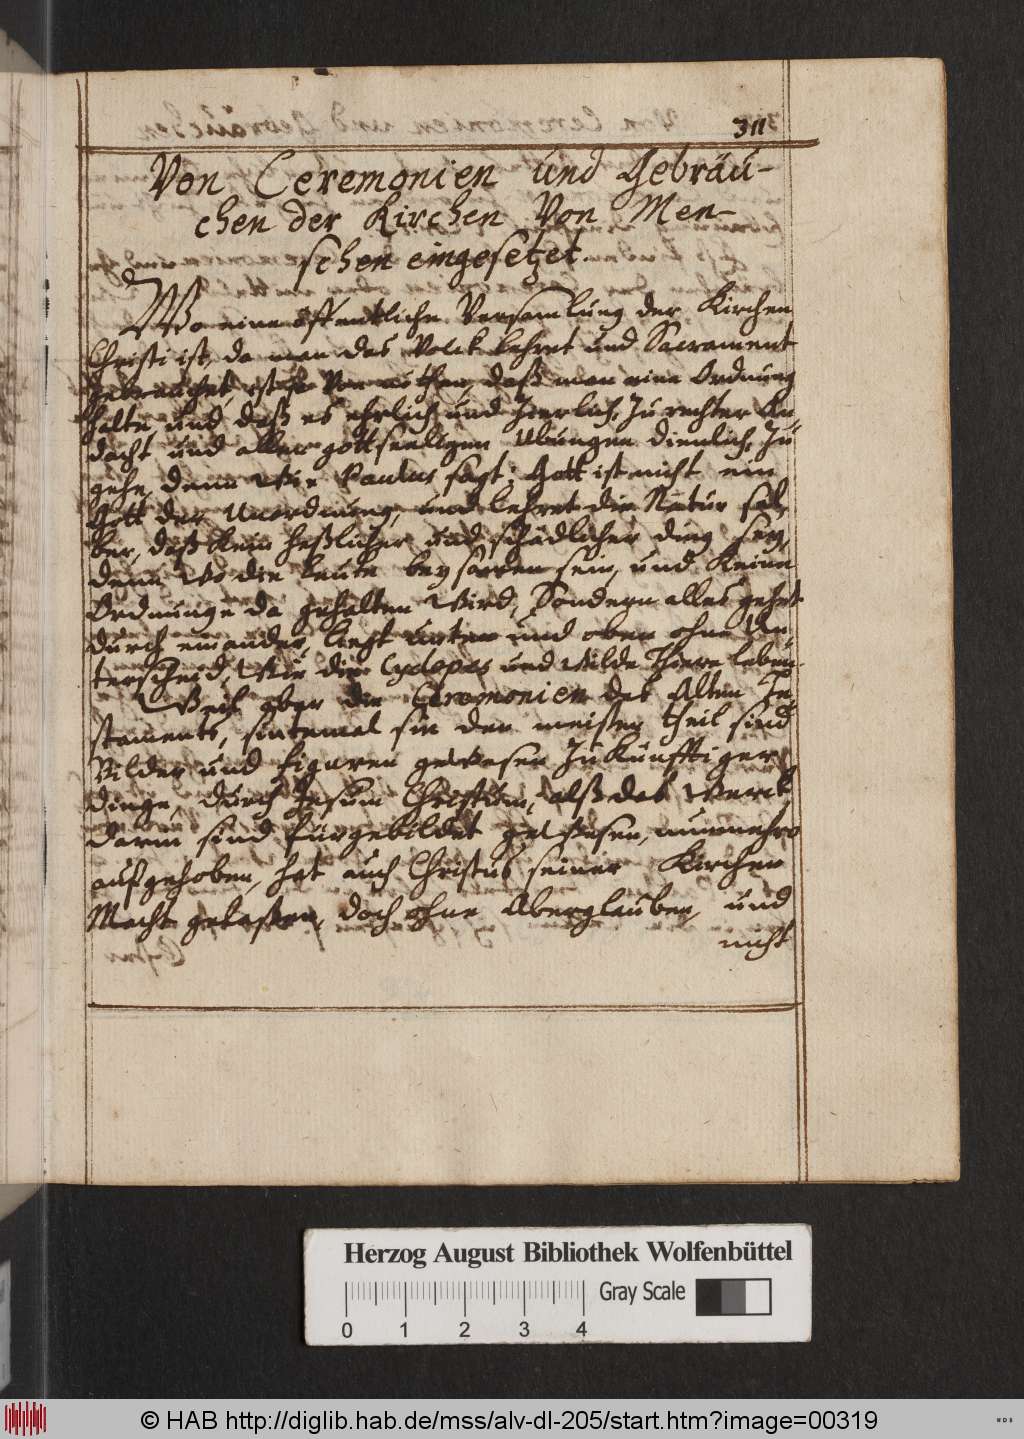 311
Von Ceremonien und Gebräu-
chen der Kirchen Von Men-
schen eingesetzet.
Wo eine öffentliche Versamlung der Kirchen
Christi ist, da man das Volck lehret und Sacrament
gebrauchet, ist Von nöthen, daß man eine Ordnung
halte, und daß es ehrlich und zierlich, zu rechter An
dacht und aller gottseeligen Ubungen dienlich, zu
gehe, denn Wie Paulus sagt: Gott ist nicht ein
Gott der Unordnung, und lehret die Natur sel
ber, daß kein heßlicher und schädlicher ding sey,
denn Wo die leute beysamen sein, und Keine
Ordnunge da gehalten Wird, Sondern alles gehet
durch einander, liegt unten und oben ohne Un
terscheid, Wie die Cyclopes und Wilde Thiere leben.
Weil aber die Ceremonien des Alten Te
staments, sintemal sie der meister theil sind
Bilder und Figuren gewesen Zukünfftiger
dinge, durch Jesum Christum, alß das Werck
darin sind fürgebildet geWesen, nunmehro
aufgehoben, hat auch Christus seiner Kirchen
Macht gelaßen, doch ohne Aberglauben, und
nicht
Herzog August Bibliothek Wolfenbüttel
0 1 2 3 4 Gray Scale
© HAB http://diglib.hab.de/mss/alv-dl-205/start.htm?image=00319